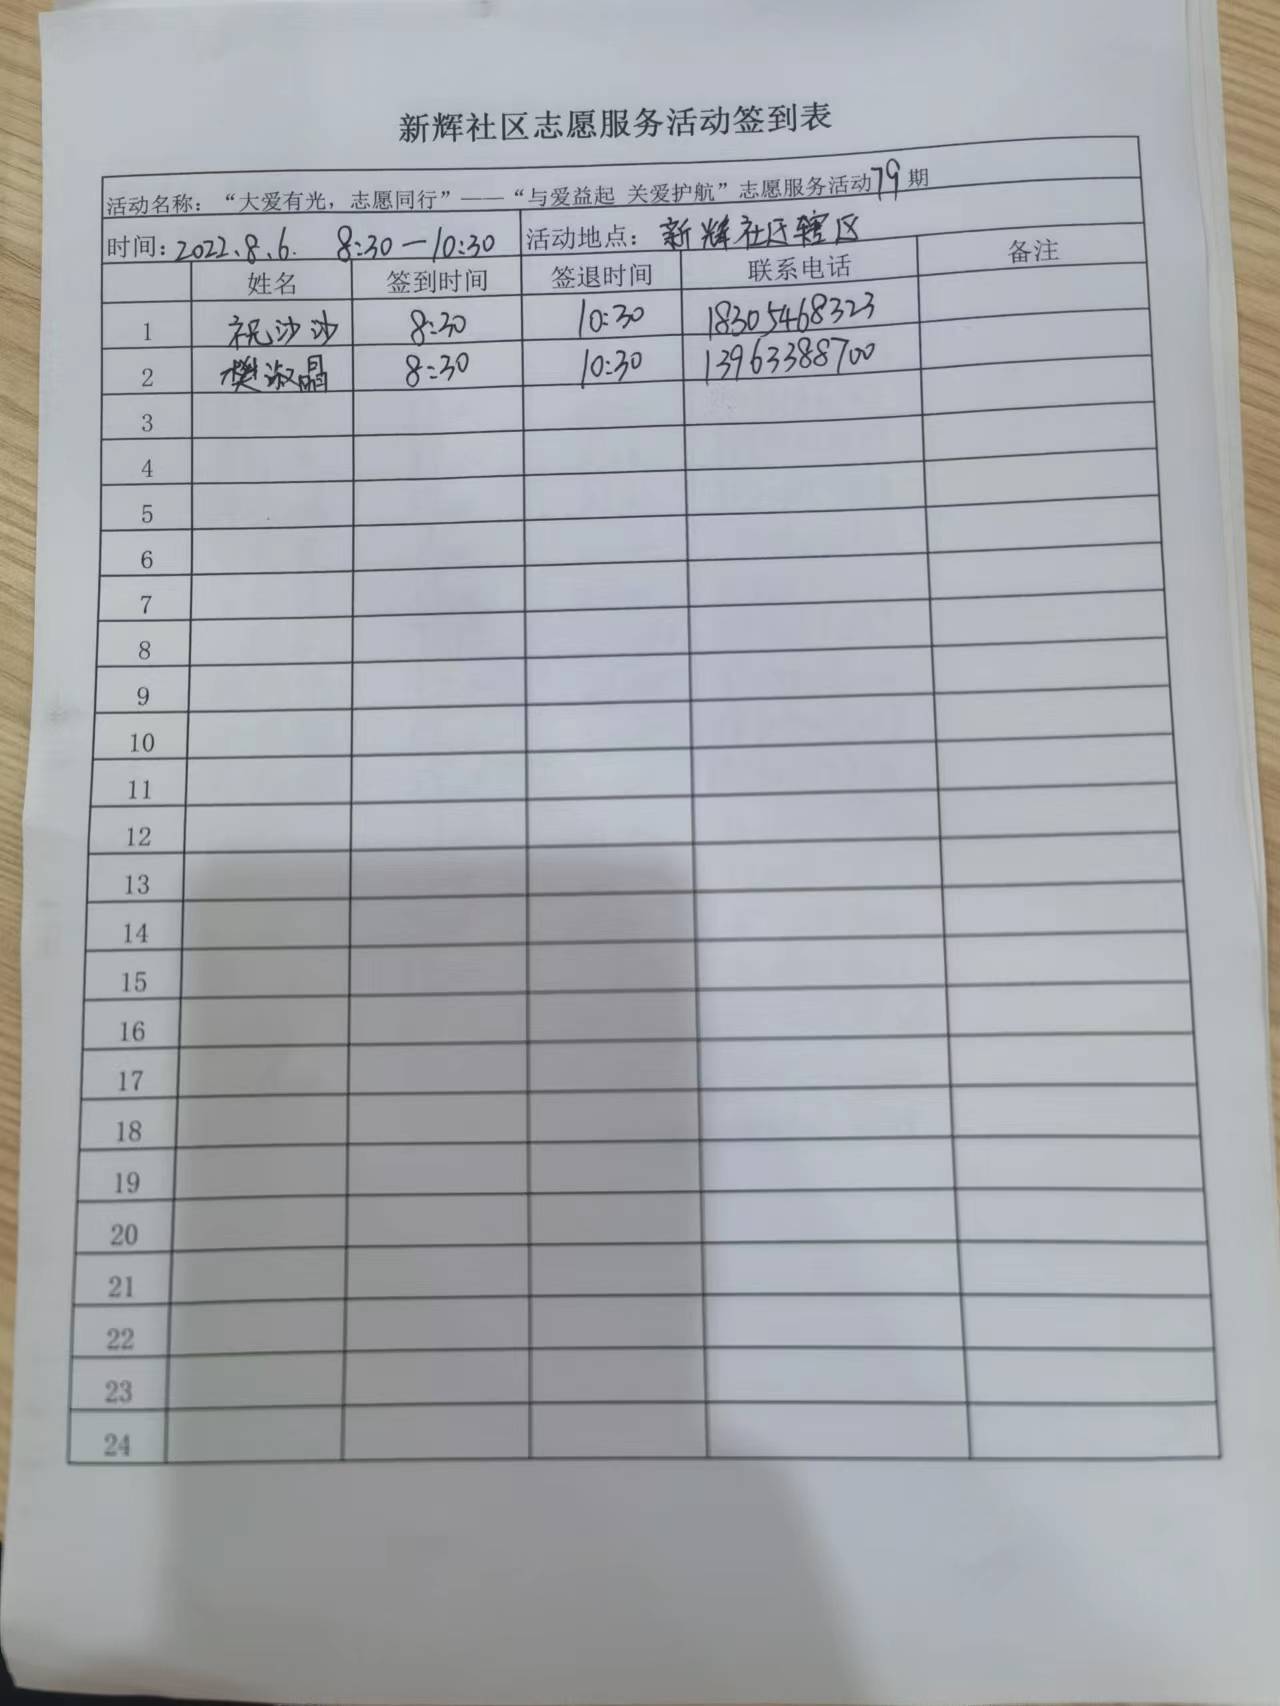 新辉社区志愿服务活动签到表
活动名称：“大爱有光，志愿同行”——“与爱益起 关爱护航”志愿服务活动79期
时间：2022.8.6. 8:30—10:30 活动地点：新辉社区辖区
姓名 签到时间 签退时间 联系电话 备注
1 祝沙沙 8:30 10:30 18305468323
2 樊淑晶 8:30 10:30 13963388700
3
4
5
6
7
8
9
10
11
12
13
14
15
16
17
18
19
20
21
22
23
24